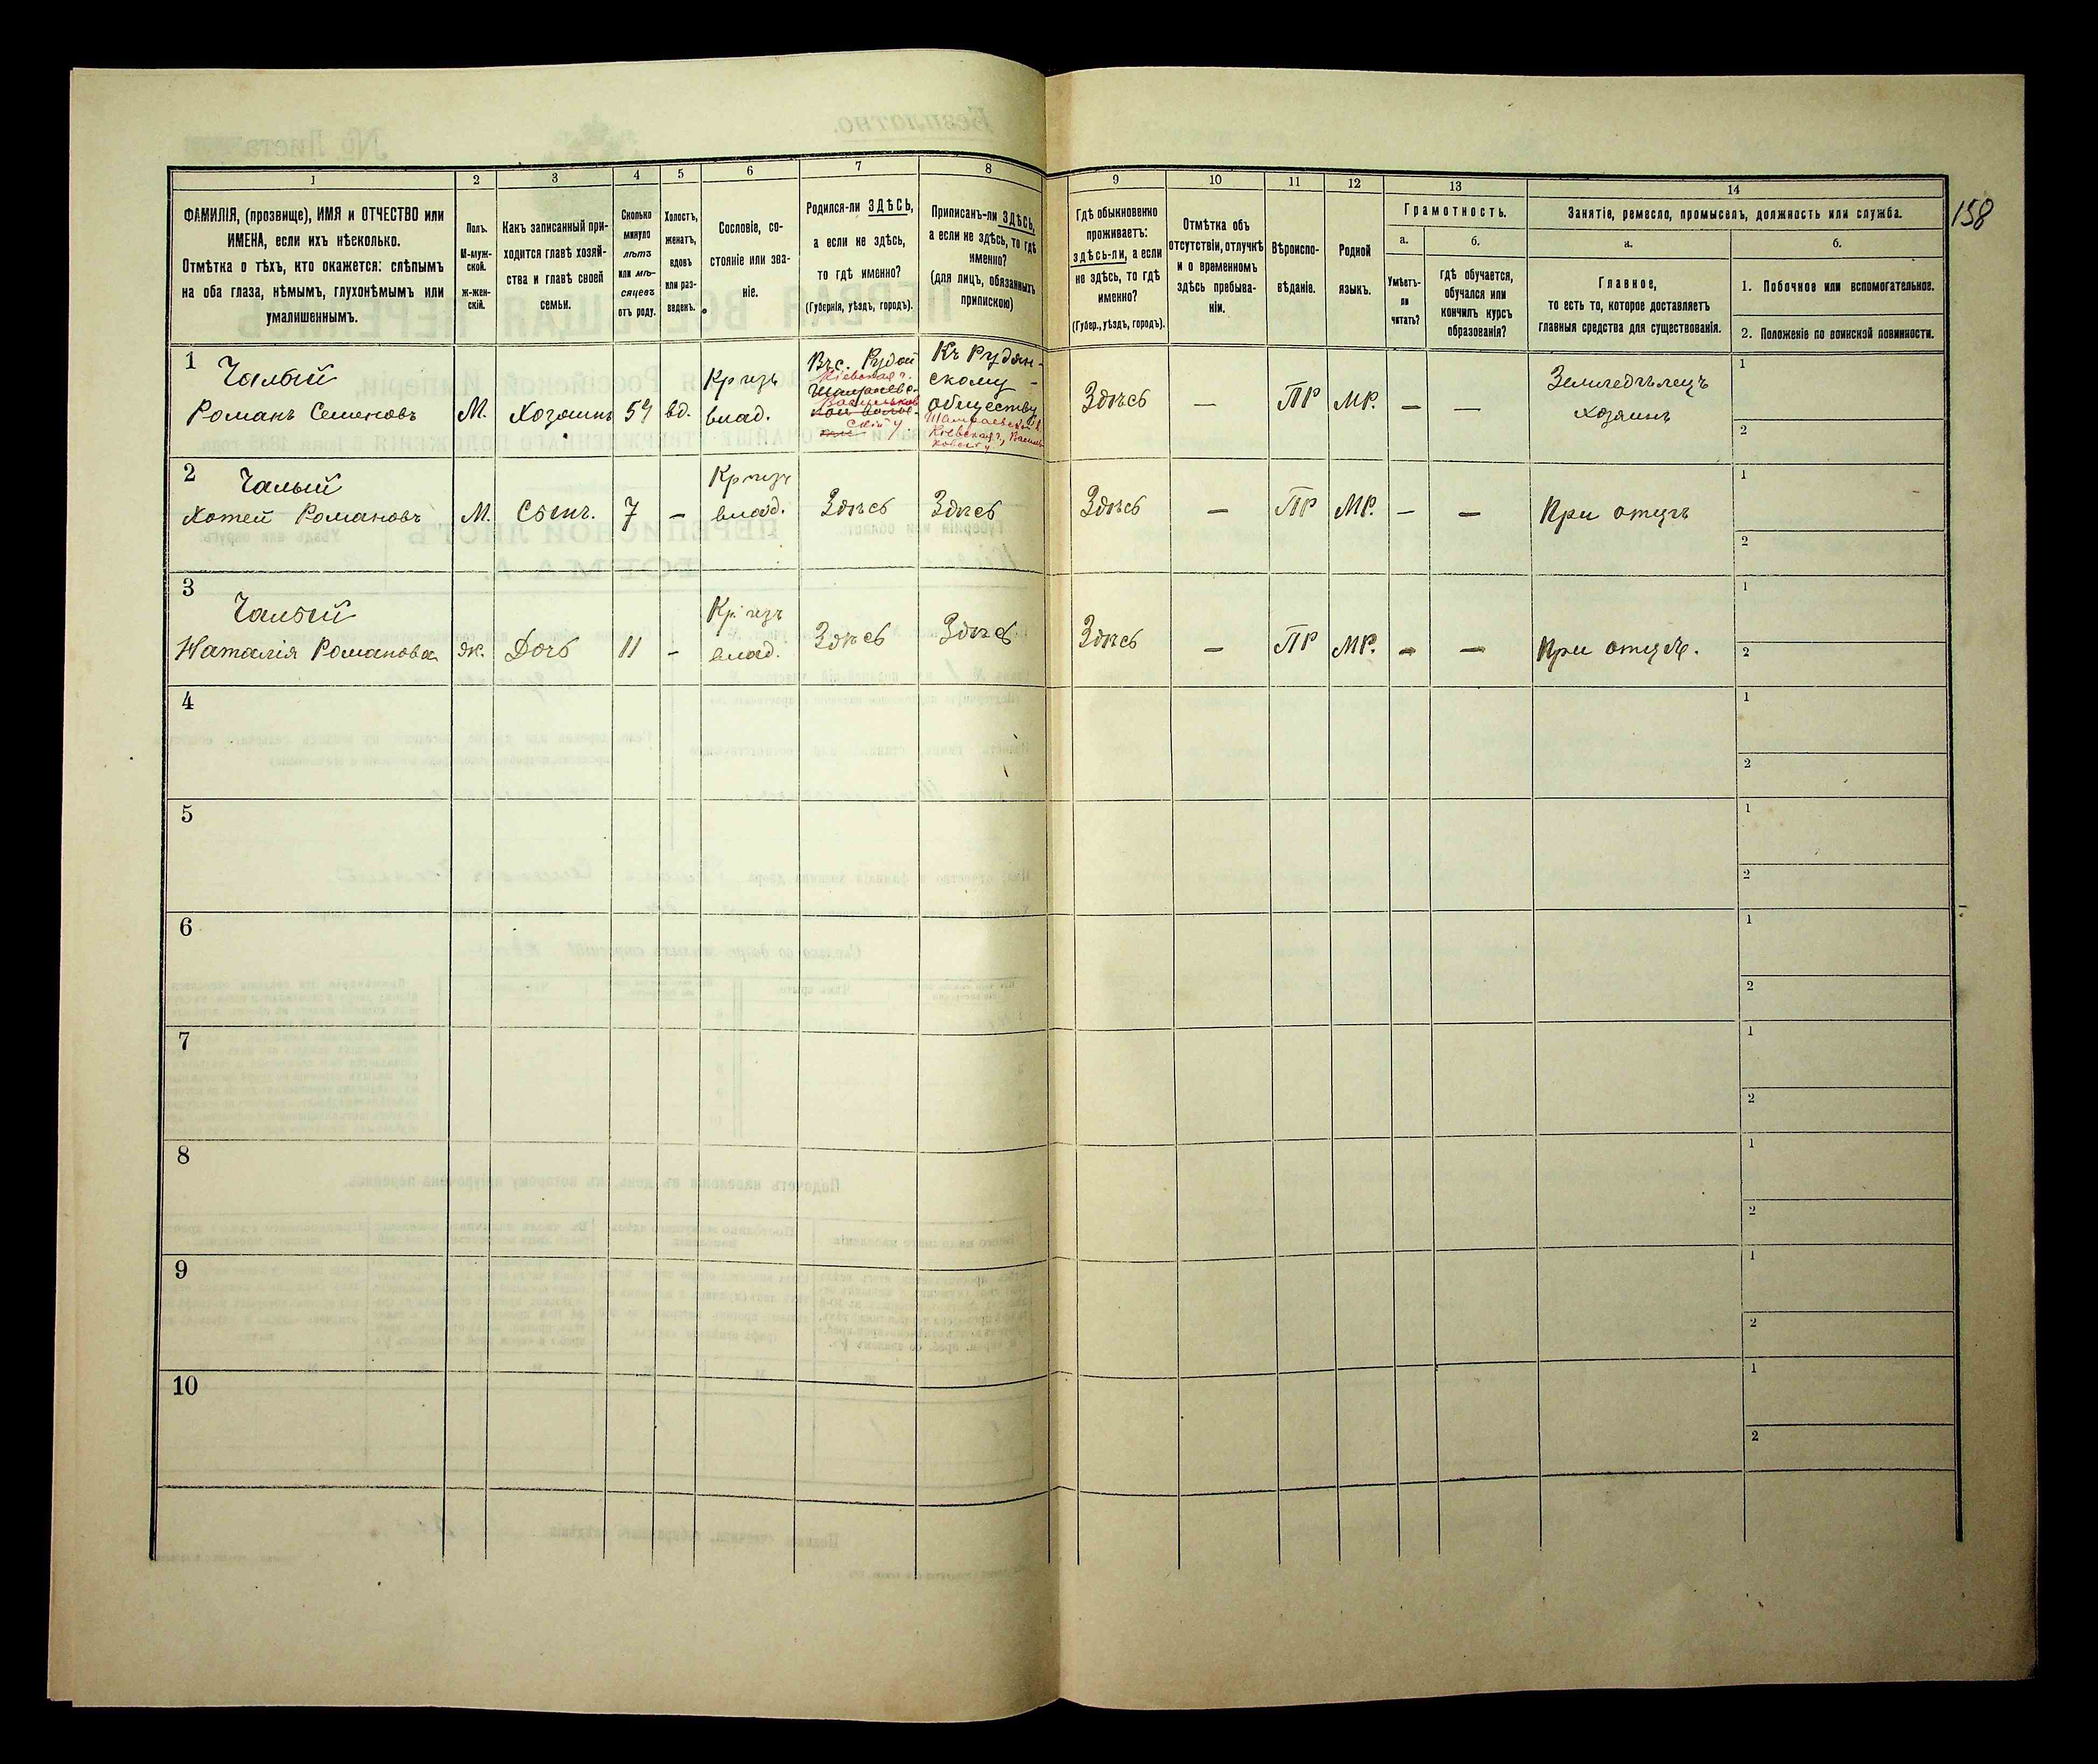 158
1
2
3
4
5
6
7
8
9
10
11
12
13
14
ФАМИЛІЯ, (прозвище), ИМЯ и ОТЧЕСТВО или
ИМЕНА, если ихъ нѣсколько.
Отмѣтка о тѣхъ, кто окажется: слѣпымъ
на оба глаза, нѣмымъ, глухонѣмымъ или
умалишеннымъ.
Полъ.
М-муж-
ской.
ж-жен-
скій.
Какъ записанный при-
ходится главѣ хозяй-
ства и главѣ своей
семьи.
Сколько
минуло
лѣтъ
или мѣ-
сяцевъ
отъ роду.
Холостъ,
женатъ,
вдовъ
или раз-
веденъ.
Сословіе, со-
стояніе или зва-
ніе.
Родился-ли ЗДѢСЬ,
а если не здѣсь,
то гдѣ именно?
(Губернія, уѣздъ, городъ).
Приписанъ-ли ЗДѢСЬ,
а если не здѣсь, то гдѣ
именно?
(для лицъ, обязанныхъ
припискою)
Гдѣ обыкновенно
проживаетъ:
здѣсь-ли, а если
не здѣсь, то гдѣ
именно?
(Губер., уѣздъ, городъ).
Отмѣтка объ
отсутствіи, отлучкѣ
и о временномъ
здѣсь пребыва-
ніи.
Вѣроиспо-
вѣданіе.
Родной
языкъ.
Грамотность.
а.
Умѣетъ-
ли
читать?
б.
гдѣ обучается,
обучался или
кончилъ курсъ
образованія?
Занятіе, ремесло, промыселъ, должность или служба.
а.
Главное,
то есть то, которое доставляетъ
главныя средства для существованія.
б.
1. Побочное или вспомогательное.
2. Положеніе по воинской повинности.
1
Чалый
Романъ Семеновъ
М.
Хозяинъ
59
вд.
Кр изъ
влад.
Въ с. Рудой
Кіевская г.
Шамраевс-
Васильков
кой волос-
скій у
Къ Рудян-
скому
обществу
Шамраевской в.
Кіевская г, Василь-
ковскій у
Здѣсь
—
ПР
МР.
—
—
Земледѣлецъ
хозяинъ
1
2
2
Чалый
Хотей Романовъ
М.
Сынъ.
7
—
Кр изъ
влад.
Здѣсь
Здѣсь
Здѣсь
—
ПР
МР.
—
—
При отцѣ
1
2
3
Чалый
Наталія Романова
ж.
Дочь
11
—
Кр. изъ
влад.
Здѣсь
Здѣсь
Здѣсь
—
ПР
МР.
—
—
При отцѣ.
1
2
4
1
2
5
1
2
6
1
2
7
1
2
8
1
2
9
1
2
10
1
2